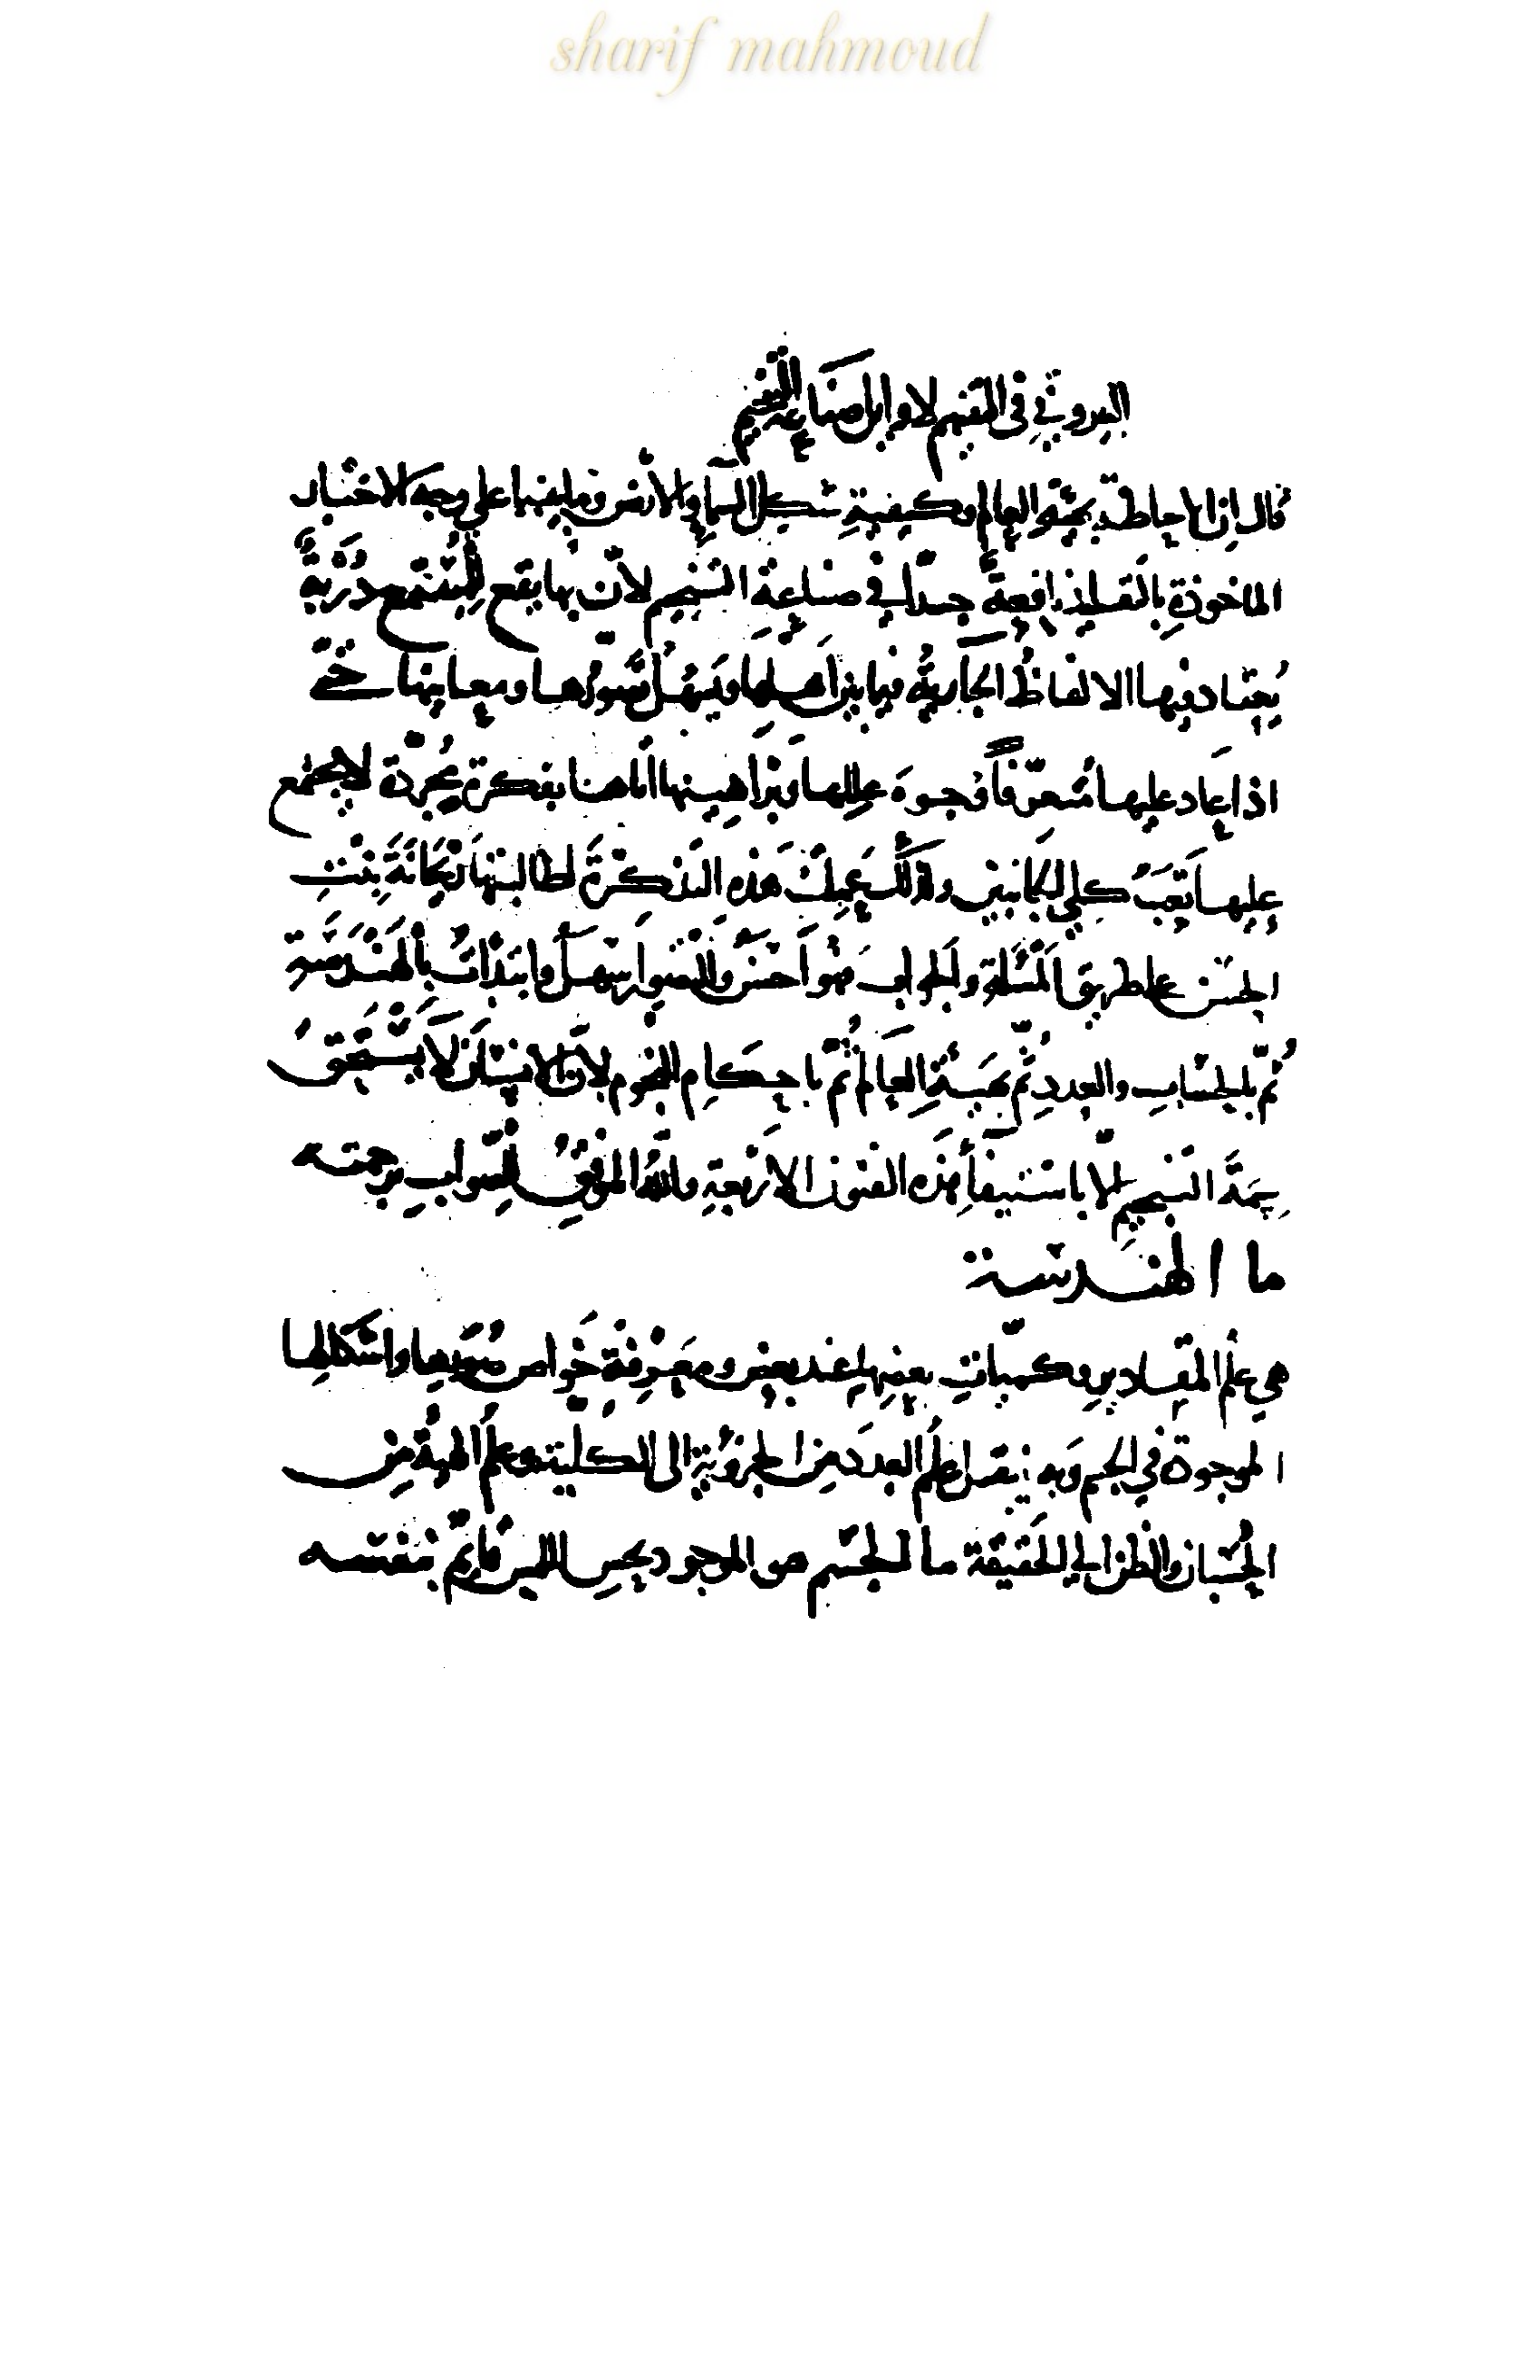 sharif mahmoud
البيروني في التفهيم لاوايل صناعة التنجيم
قال ان الاحاطة بهيئة العالم وكيفية شكل السماء والارض وما بينهما على وجه الاخبار
الماخوذة بالتقليد نافعة جدا في صناعة التنجيم لان بها يقع للمستمع دربة
يعتاد فيها الالفاظ الجارية فيما بين اهلها ويسهل تصورها ومعانيها حتى
اذا عاد عليها متعرفا وجوه عللها وبراهينها اتاها بفكرة مجردة لا يجتمع
عليها تعب كلي الجانبين ولذلك عملت هذه التذكرة لطالبتها ريحانة بنت
الحسن على طريق المسئلة والجواب هو احسن وللتصور اسهل وابتدات بالهندسة
ثم بالحساب والعدد ثم بهيئة العالم ثم باحكام النجوم لان الانسان لا يستحق
سمة التنجيم الا باستيفاء هذه الفنون الاربعة والله الموفق للصواب برحمته
ما الهندسة
هي علم المقادير وكميات بعضها عند بعض ومعرفة خواص صورها واشكالها
الموجودة في الجسم وبه ينتقل علم العدد من الجزوية الى الكلية وعلم الهيئة من
الحسبان والظن الى الحقيقة ما الجسم هو الموجود بحس اللمس قائم بنفسه